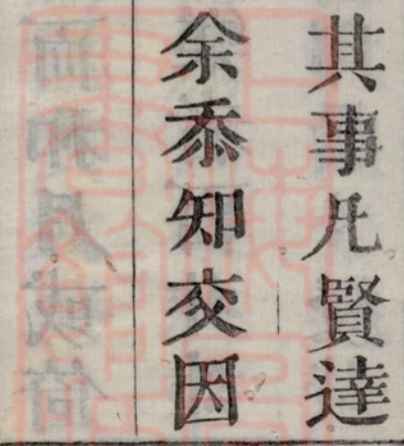 其事凡賢達
余忝知交因